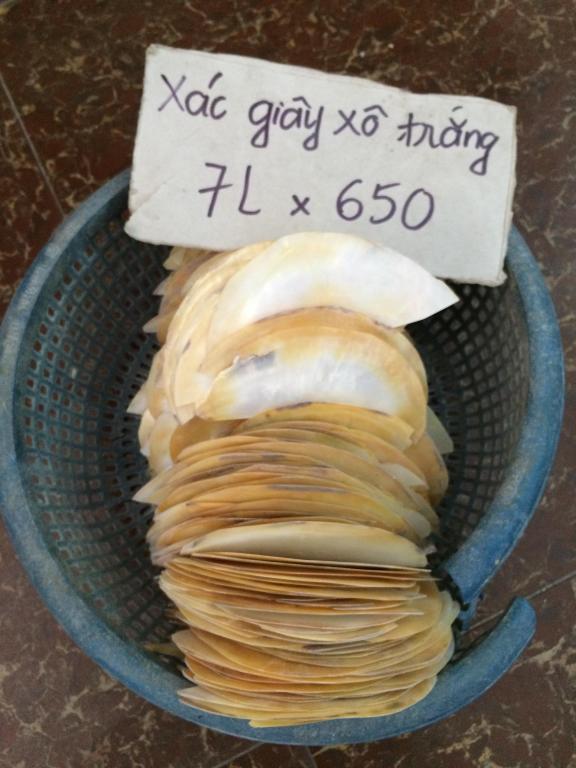 Xác giấy xô trắng
7L x 650